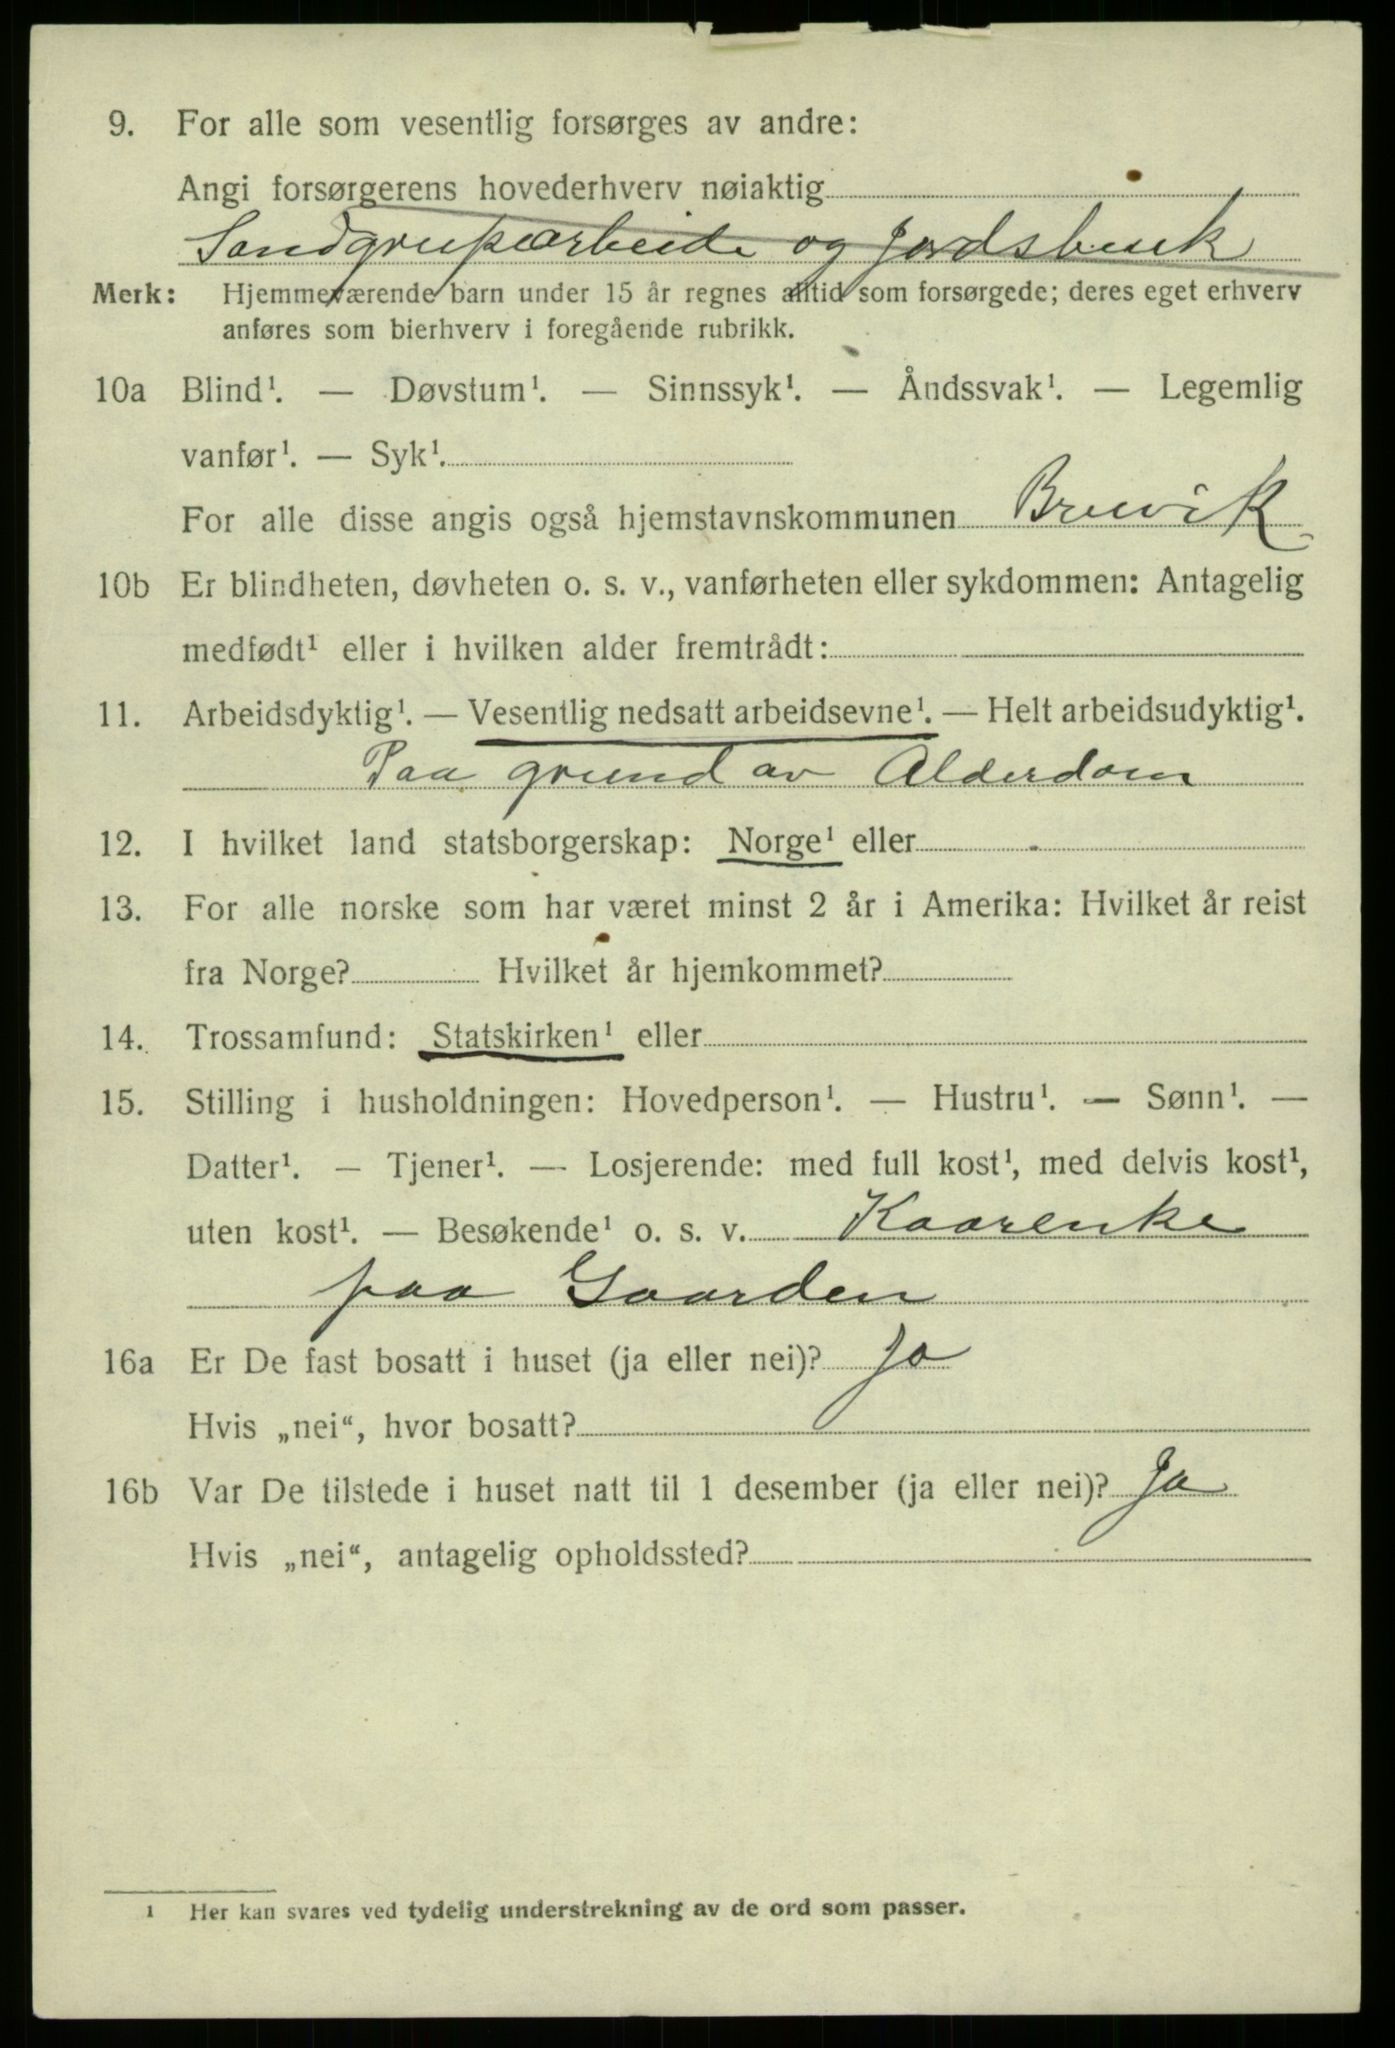 9. For alle som vesentlig forsørges av andre:
Angi forsørgerens hovederhverv nøiaktig
Sandgruparbeide og Jordsbruk
Merk: Hjemmeværende barn under 15 år regnes alltid som forsørgede; deres eget erhverv
anføres som bierhverv i foregående rubrikk.
10a Blind¹. — Døvstum¹. — Sinnssyk¹. — Åndssvak¹. — Legemlig
vanfør¹. — Syk¹.
For alle disse angis også hjemstavnskommunen Brevik
10b Er blindheten, døvheten o. s. v., vanførheten eller sykdommen: Antagelig
medfødt¹ eller i hvilken alder fremtrådt:
11. Arbeidsdyktig¹. — Vesentlig nedsatt arbeidsevne¹. — Helt arbeidsudyktig¹.
Paa grund av Alderdom
12. I hvilket land statsborgerskap: Norge¹ eller
13. For alle norske som har været minst 2 år i Amerika: Hvilket år reist
fra Norge? Hvilket år hjemkommet?
14. Trossamfund: Statskirken¹ eller
15. Stilling i husholdningen: Hovedperson¹. — Hustru¹. — Sønn¹. —
Datter¹. — Tjener¹. — Losjerende: med full kost¹, med delvis kost¹,
uten kost¹. — Besøkende¹ o. s. v. Kaarenke
paa Gaarden
16a Er De fast bosatt i huset (ja eller nei)? Ja
Hvis „nei“, hvor bosatt?
16b Var De tilstede i huset natt til 1 desember (ja eller nei)? Ja
Hvis „nei“, antagelig opholdssted?
1 Her kan svares ved tydelig understrekning av de ord som passer.